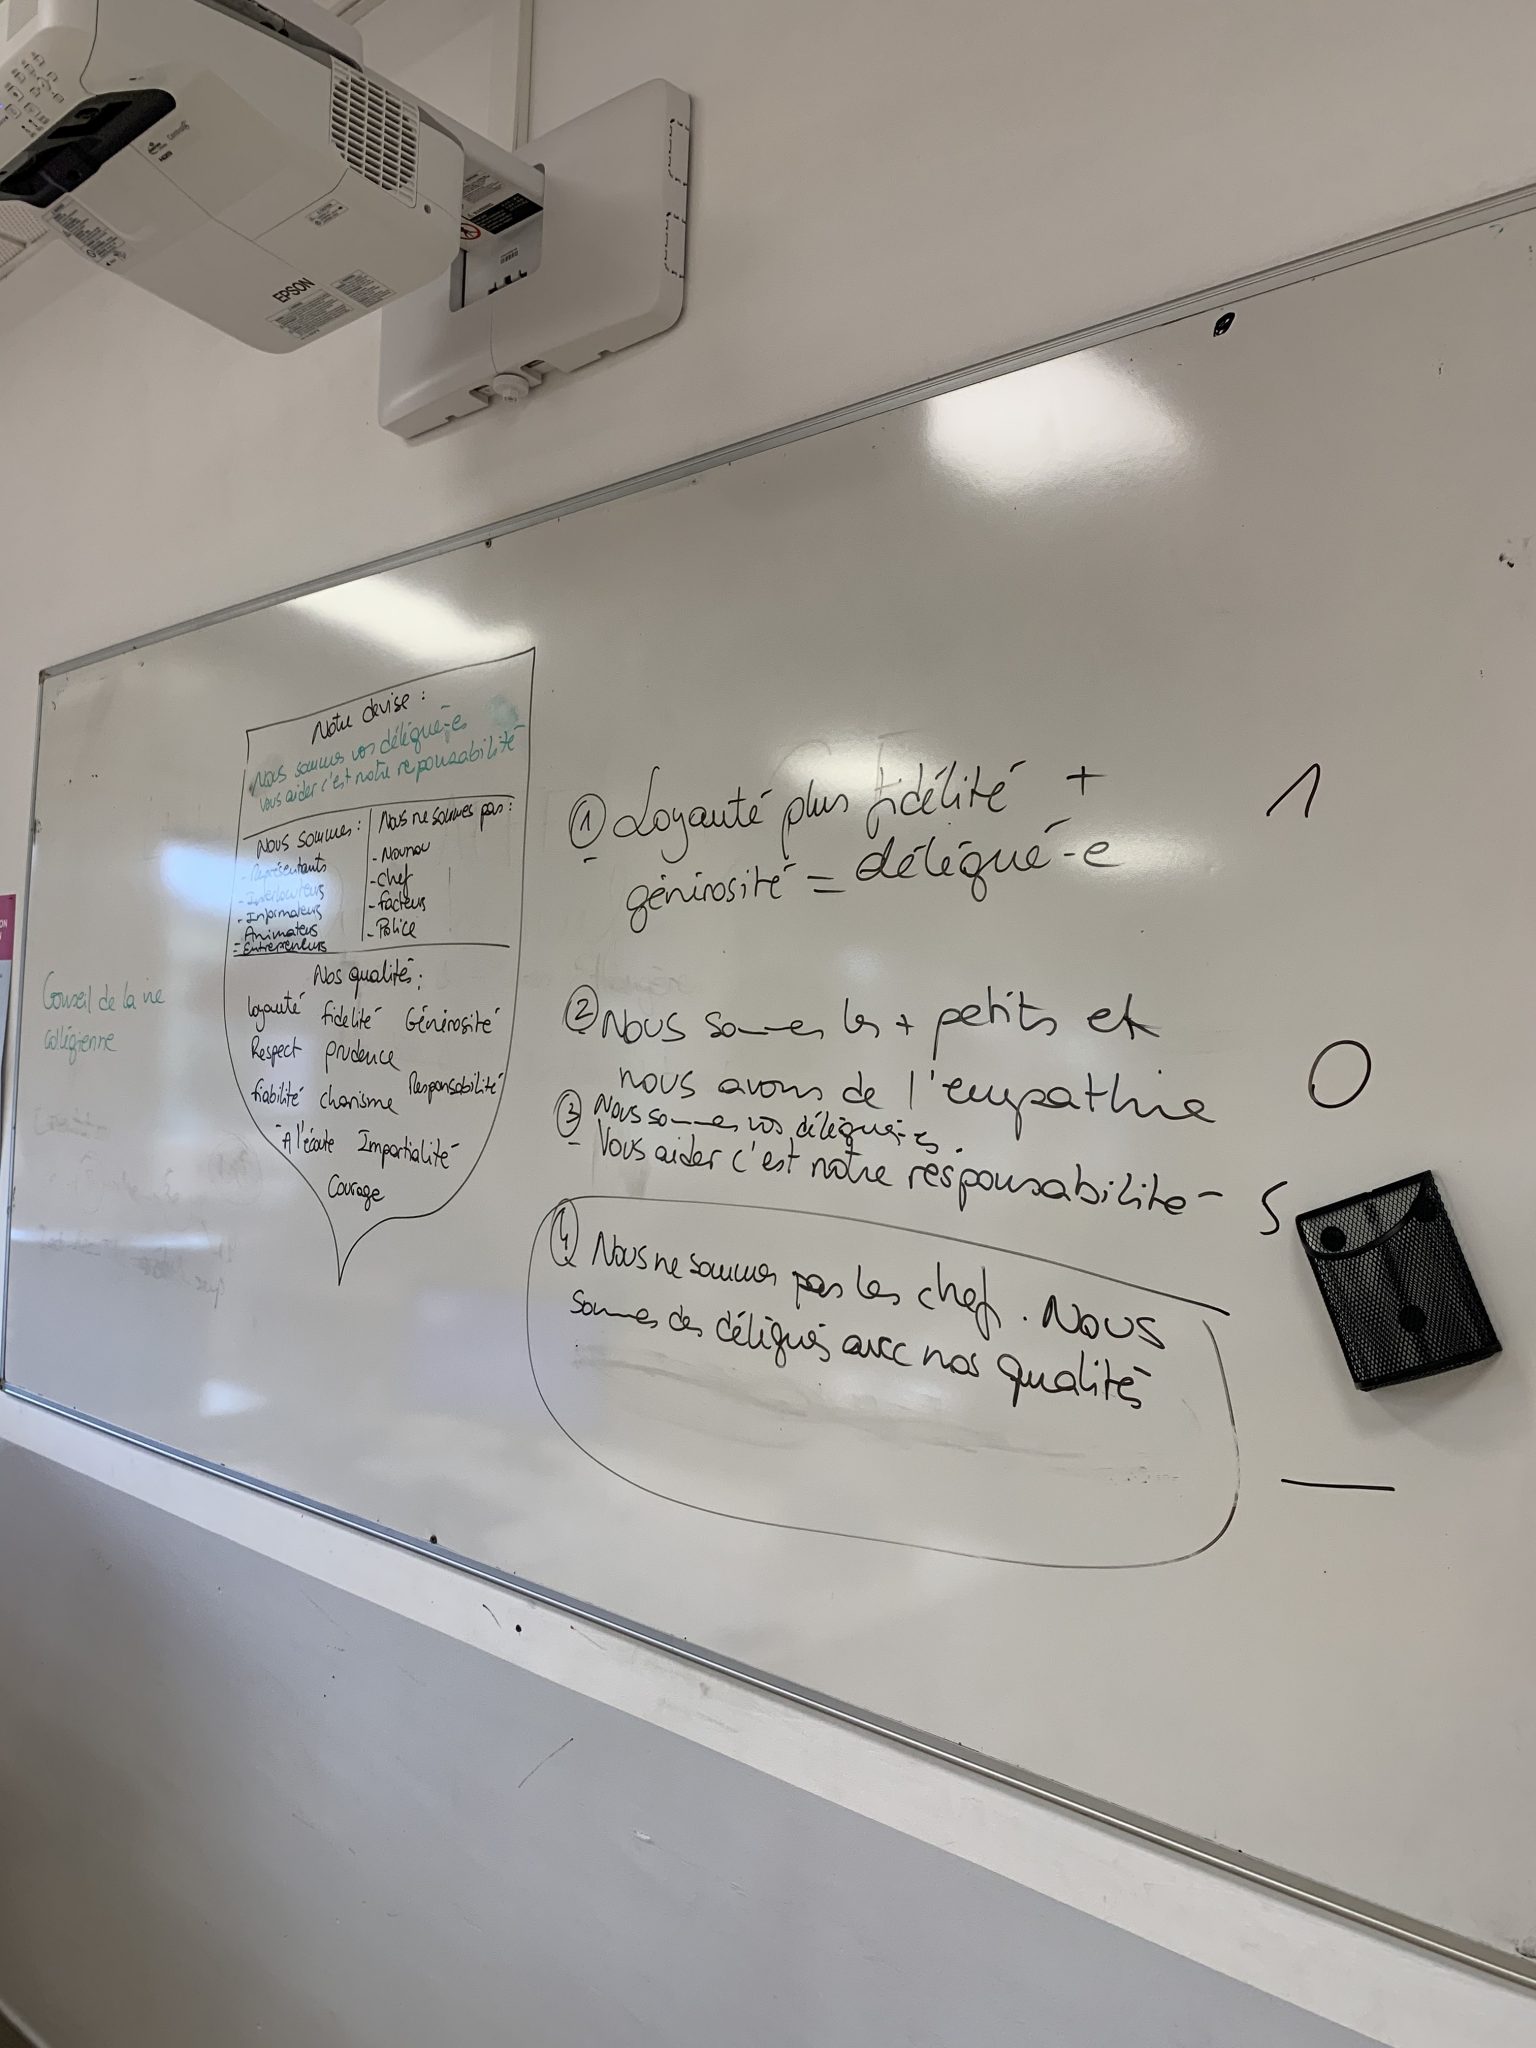 EPSON
Notre devise :
Nous sommes vos délégué-es
Vous aider c'est notre responsabilité
Nous sommes :
- Représentants
- Interlocuteurs
- Informateurs
Animateurs
- Entrepreneurs
Nous ne sommes pas :
- Nounou
- Chef
- Facteurs
- Police
Nos qualités :
loyauté fidélité Générosité
Respect prudence
fiabilité charisme Responsabilité
A l'écoute Impartialité
Courage
Conseil de la vie
collégienne
① Loyauté plus fidélité +
générosité = délégué-e
1
② Nous sommes les + petits et
nous avons de l'empathie
0
③ Nous sommes vos délégué-es.
Vous aider c'est notre responsabilité
5
4 Nous ne sommes pas les chefs. Nous
sommes des délégués avec nos qualités
—